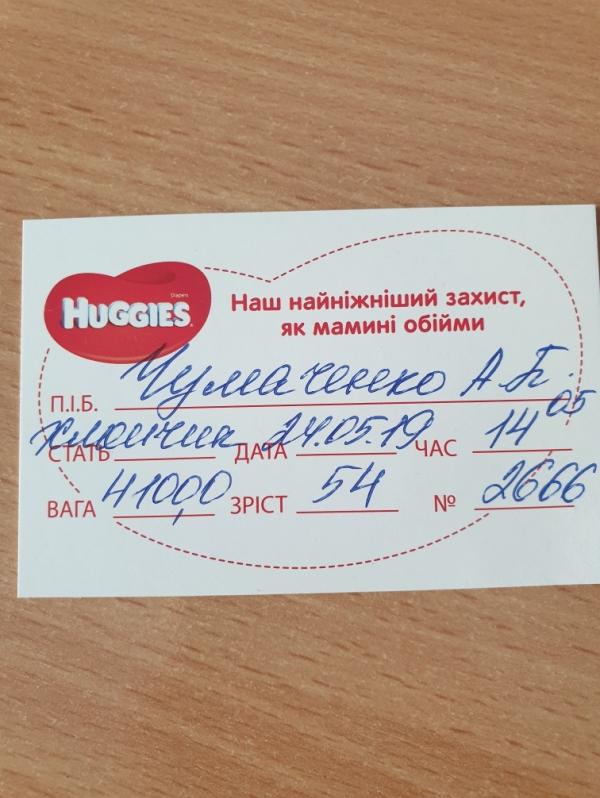 Diapers
HUGGIES
Наш найніжніший захист,
як мамині обійми
П.І.Б. Чумаченко А.Б.
СТАТЬ хлопчик ДАТА 24.05.19 ЧАС 14 05
ВАГА 4100,0 ЗРІСТ 54 № 2666